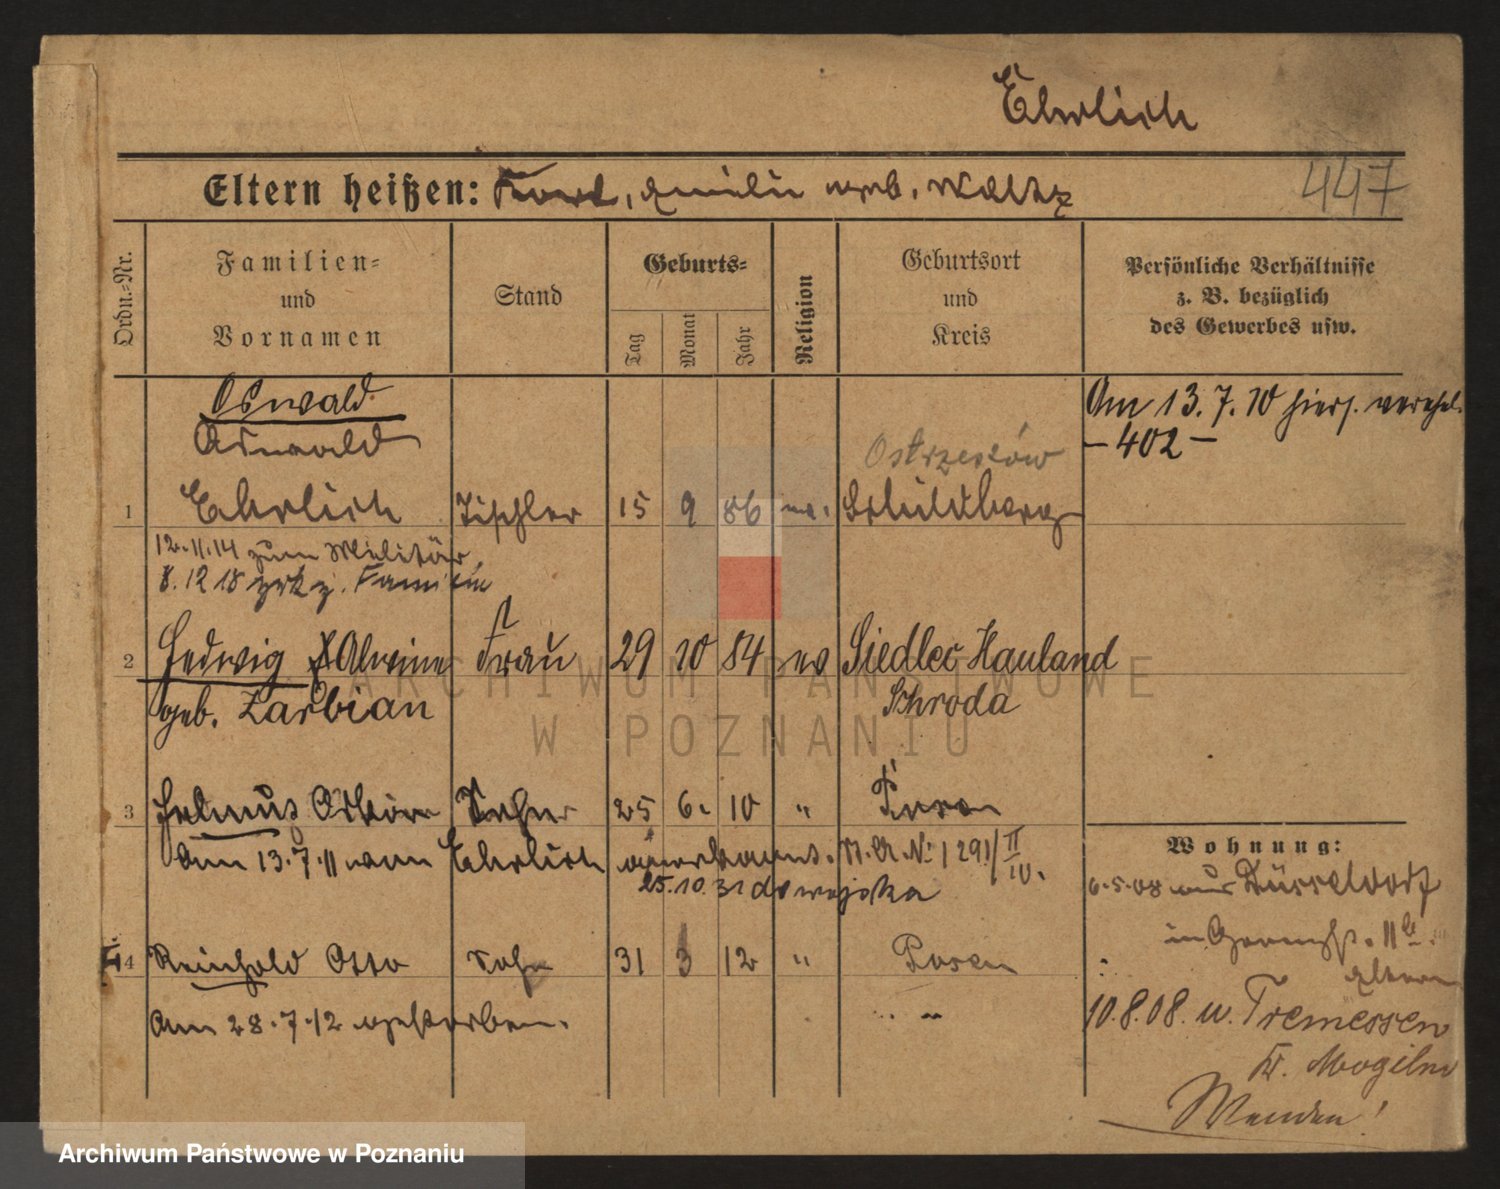 Ehrlich
447
Eltern heißen: Karl, Emilie geb. Waltz
Ordn.-Nr.
Familien-
und
Vornamen
Stand
Geburts-
Tag
Monat
Jahr
Religion
Geburtsort
und
Kreis
Persönliche Verhältnisse
z. B. bezüglich
des Gewerbes usw.
Oswald
Am 13.7.10 hier verehel.
- 402 -
Ostrzeszów
1 Ehrlich Tischler 15 9 86 ev. Schildberg
12.11.14 zum Militär
8.12 18 zrk z. Familie
2 Hedwig Alwine Frau 29 10 84 ev Siedlec Hauland
geb. Zarbian Schroda
3 Helmut Oskar Sohn 25 6. 10 " Posen
Wohnung:
Am 13.7.11 vom Ehrlich anerkannt. 1291/II
IV.
25.10.31 do wojska
6.5.08 aus Düsseldorf
in 11b.
Eltern
4 Reinhold Otto Sohn 31 3 12 " Posen
Am 28.7.12 gestorben. "
10.8.08. n. Tremessen
Kr. Mogilno
Wenden!
ARCHIWUM PAŃSTWOWE
W POZNANIU
Archiwum Państwowe w Poznaniu